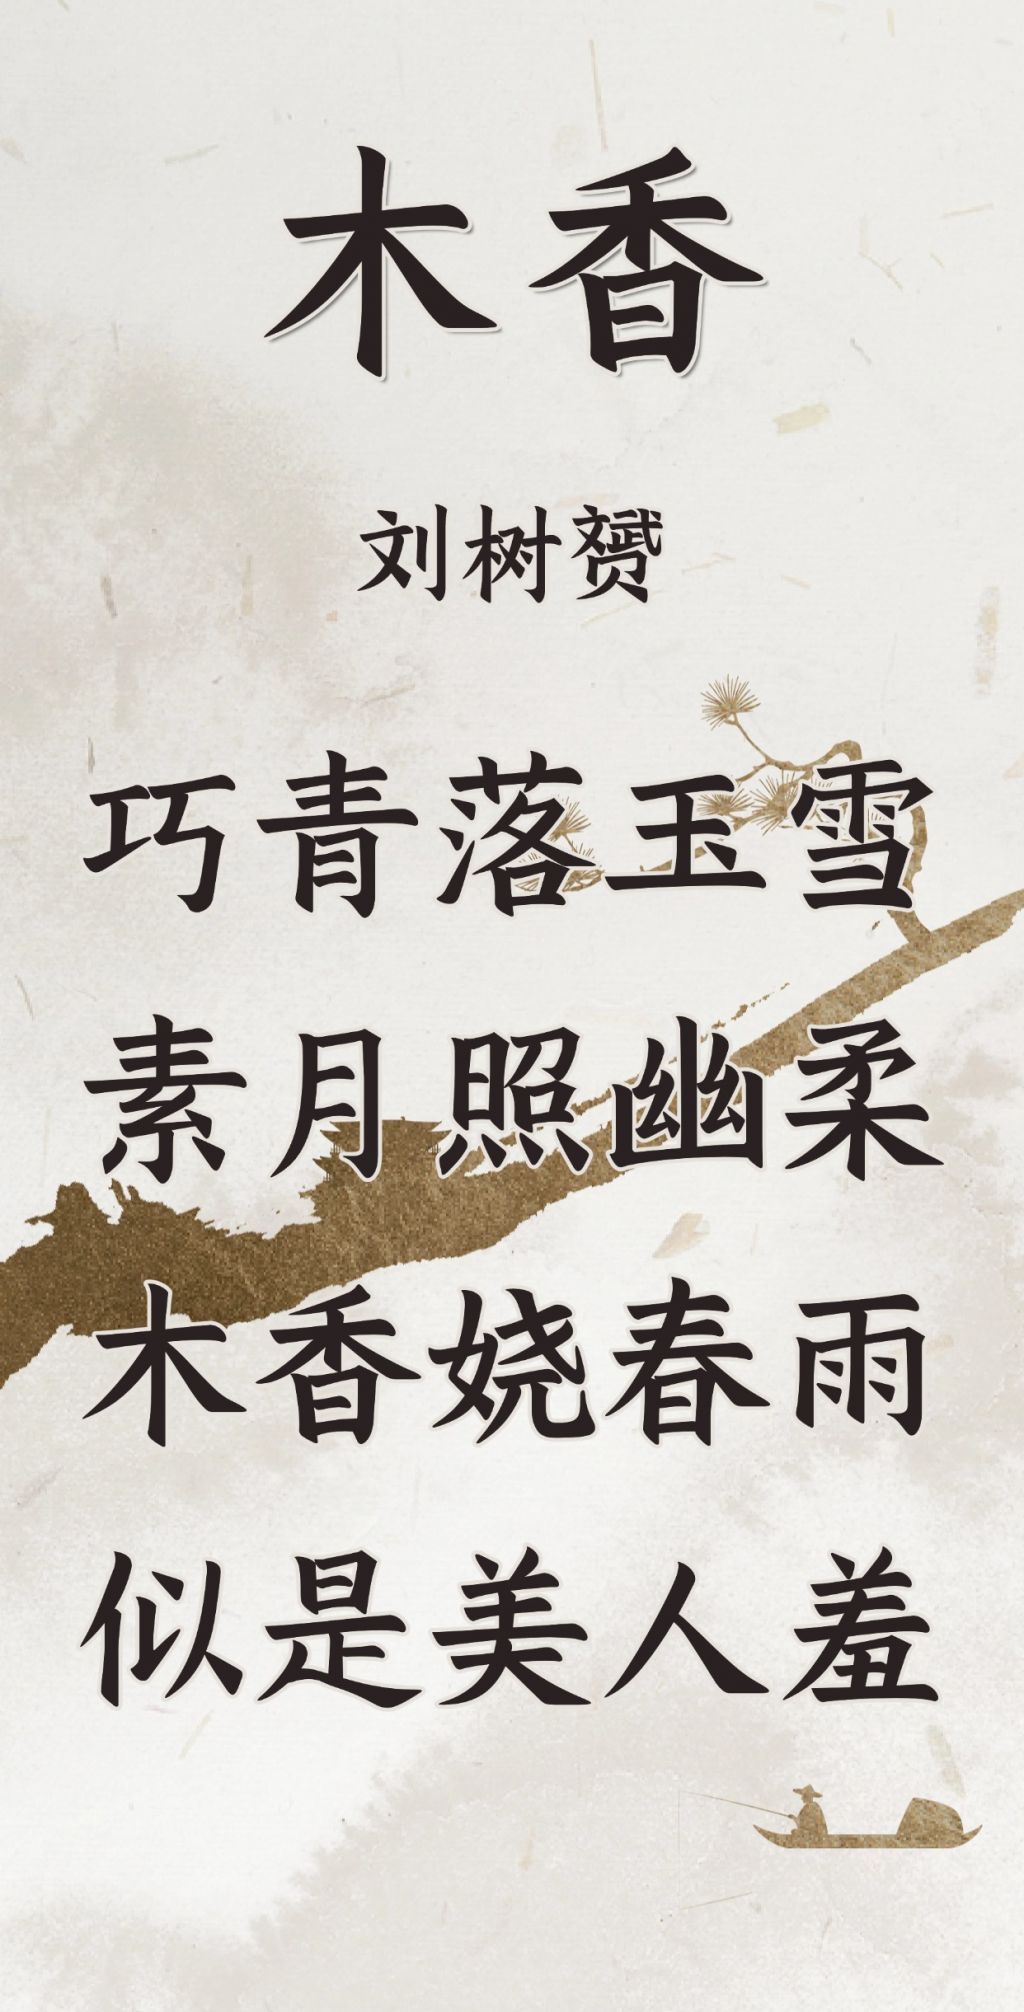 木香
刘树赟
巧青落玉雪
素月照幽柔
木香娆春雨
似是美人羞